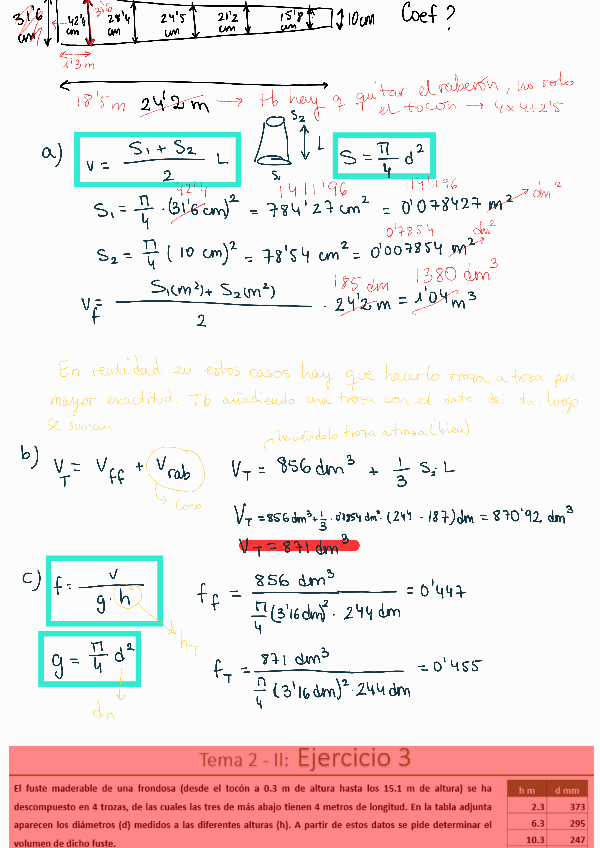 31'6 cm 42'4 cm 31'6 28'4 cm 24'5 cm 21'2 cm 15'8 cm 10cm Coef ?
1'3 m
18'5 m 24'2 m → tb hay q quitar el raberón, no solo
el tocón → 4x4+2'5
a) V = S1 + S2 / 2 L S2 L S1 S = π/4 d²
42'4 1411'96 14'1196
S1 = π/4 · (31'6 cm)² = 784'27 cm² = 0'078427 m² → dm²
0'7854 dm²
S2 = π/4 (10 cm)² = 78'54 cm² = 0'007854 m²
185 dm 1380 dm³
Vf = S1(m²) + S2(m²) / 2 · 24'2 m = 1'04 m³
En realidad en estos casos hay que hacerlo troza a troza para
mayor exactitud. Tb añadiendo una troza con el dato del dn. luego
se suman.
haciéndolo troza a troza (bien)
b) VT = Vff + Vrab VT = 856 dm³ + 1/3 S2 L
Cono
VT = 856 dm³ + 1/3 · 0'7854 dm² · (244 - 187) dm = 870'92 dm³
VT = 871 dm³
c) f = v / g · h ff = 856 dm³ / π/4 (3'16 dm)² · 244 dm = 0'447
hT
g = π/4 d² fT = 871 dm³ / π/4 (3'16 dm)² · 244 dm = 0'455
dn
Tema 2 - II: Ejercicio 3
El fuste maderable de una frondosa (desde el tocón a 0.3 m de altura hasta los 15.1 m de altura) se ha
descompuesto en 4 trozas, de las cuales las tres de más abajo tienen 4 metros de longitud. En la tabla adjunta
aparecen los diámetros (d) medidos a las diferentes alturas (h). A partir de estos datos se pide determinar el
volumen de dicho fuste.
h m d mm
2.3 373
6.3 295
10.3 247